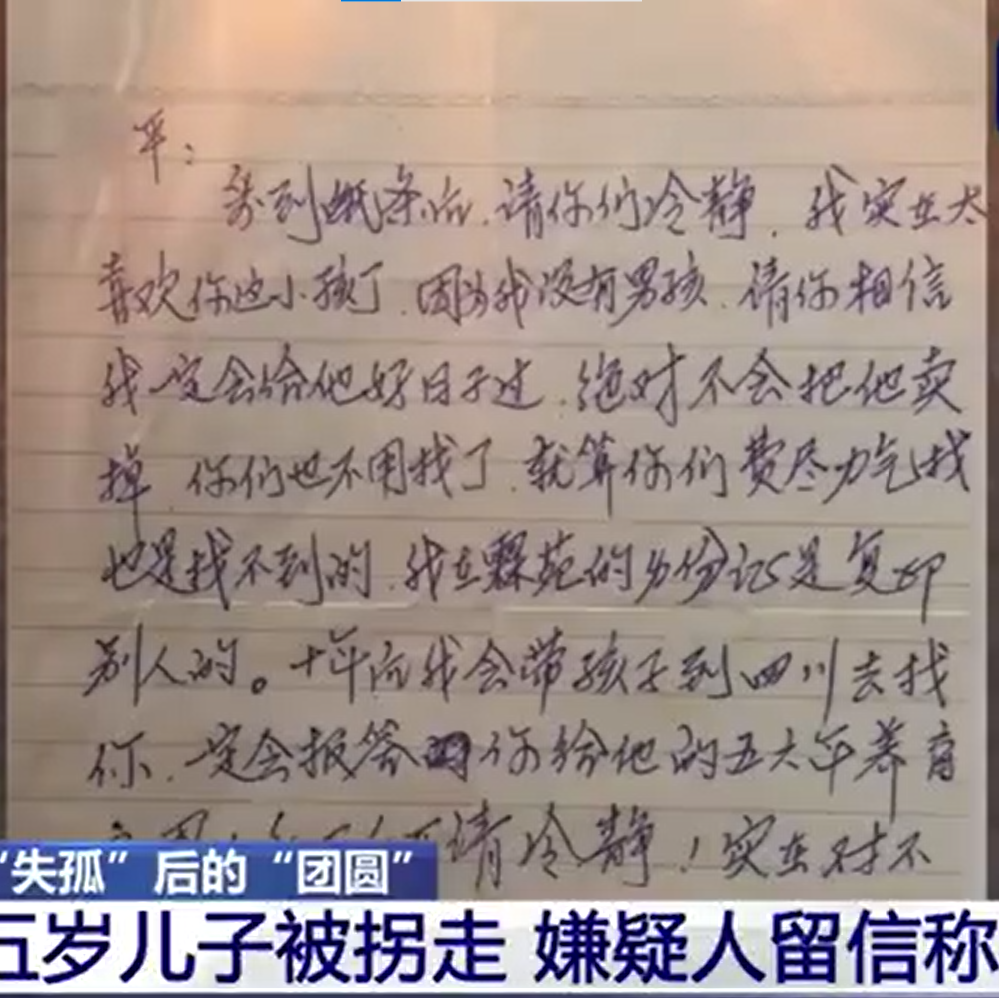 平:
等到纸条后.请你们冷静.我实在太
喜欢你这小孩了.因为我没有男孩.请你相信
我一定会给他好日子过.绝对不会把他卖
掉 你们也不用找了.就算你们费尽力气找
也是找不到的.我在票苑的身份证是复印
别人的。十年后我会带孩子到四川去找
你.一定会报答你给他的五六年养育
请冷静!实在对不
“失孤”后的“团圆”
五岁儿子被拐走 嫌疑人留信称